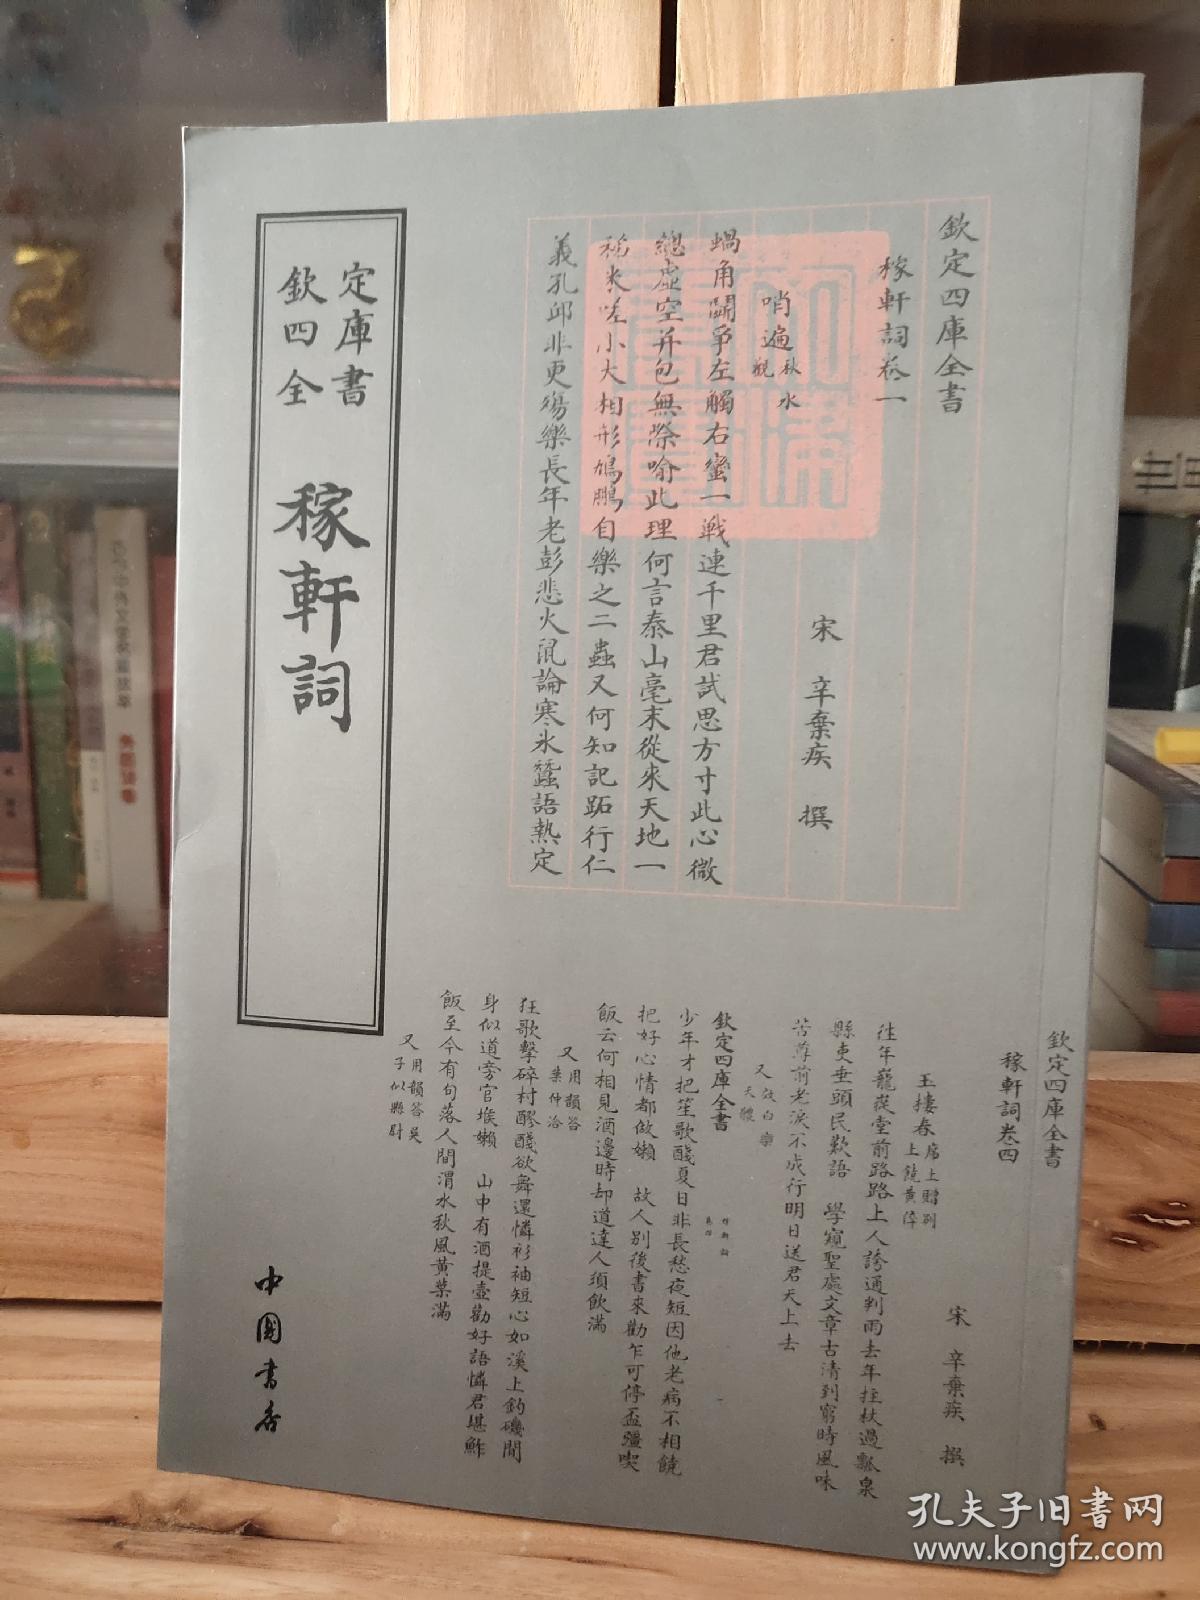 欽定四庫全書
稼軒詞卷一
宋 辛棄疾 撰
哨遍秋水觀
蝸角鬬爭左觸右蠻一戰連千里君試思方寸此心微
總虛空并包無際喻此理何言泰山毫末從來天地一
稊米嗟小大相形鳩鵬自樂之二蟲又何知記跖行仁
義孔邱非更殤樂長年老彭悲火鼠論寒氷蠶語熱定
欽定四庫全書
稼軒詞
欽定四庫全書
稼軒詞卷四
宋 辛棄疾 撰
玉樓春席上贈別上饒黃倅
往年巃嵸堂前路路上人誇通判雨去年拄杖過瓢泉
縣吏垂頭民歎語 學窺聖處文章古清到窮時風味
苦尊前老淚不成行明日送君天上去
又效白樂天體
欽定四庫全書
少年才把笙歌醆夏日非長愁夜短因他老病不相饒
把好心情都做嬾 故人別後書來勸乍可停盃彊喫
飯云何相見酒邊時却道達人須飲滿
又用韻答葉仲洽
狂歌擊碎村醪醆欲舞還憐衫袖短心如溪上釣磯間
身似道旁官堠嬾 山中有酒提壺勸好語憐君堪鮓
飯至今有句落人間渭水秋風黃葉滿
又用韻答吳子似縣尉
中國書店
孔夫子旧书网
www.kongfz.com